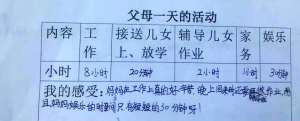 父母一天的活动
内容 工作 接送儿女上、放学 辅导儿女作业 家务 娱乐
小时 8小时 20分钟 2小时 1小时 30分钟
我的感受：妈妈在工作上真的好辛苦 晚上回来 作业，而
且妈妈娱乐的时间只有短短的30分钟呀！